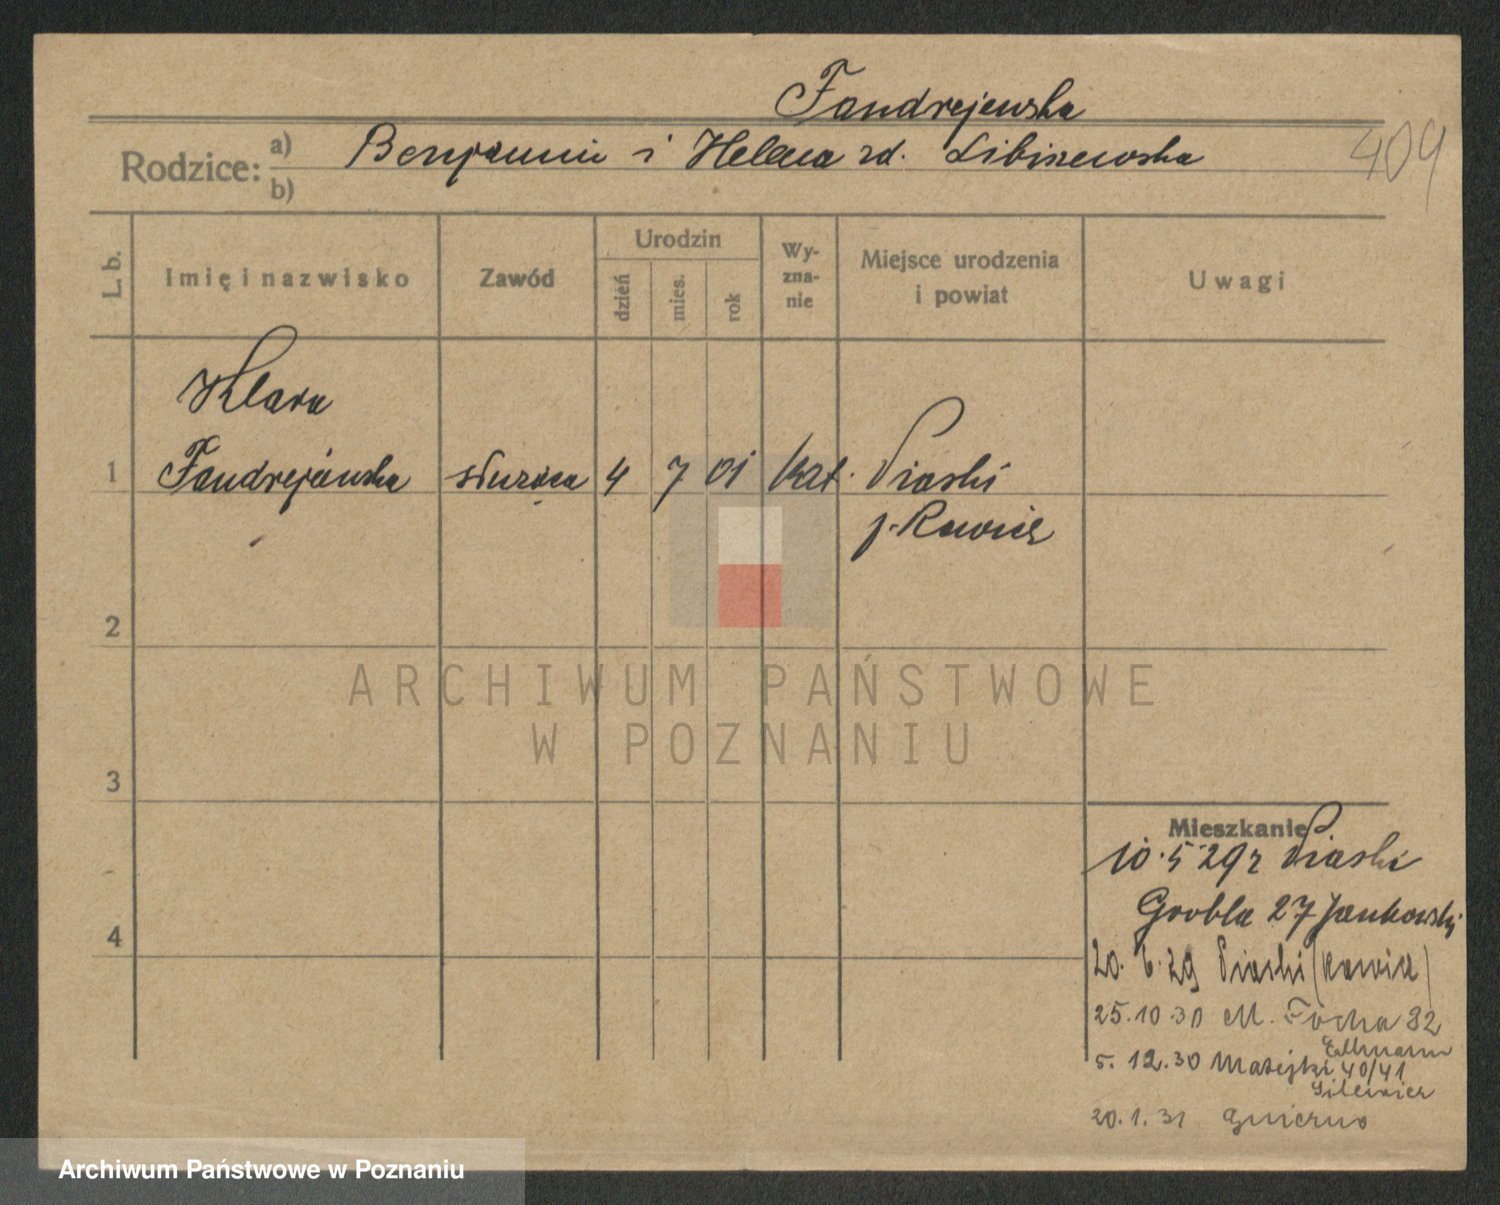 Fandrejewska
409
Rodzice: a) Benjamin i Helena zd. Libiszewska
b)
L. b. Imię i nazwisko Zawód Urodzin dzień mies. rok Wy-zna-nie Miejsce urodzenia i powiat Uwagi
Klara
1 Fandrejewska służąca 4 7 01 kat. Piaski
p. Rawicz
2
3
4
Mieszkanie
10.5 29 z Piaski
Grobla 27 Jankowski
20. 6. 29 Piaski (Rawicz)
25.10 30 M. Focha 82
5. 12.30 Matejki 40/41
20.1.31 Gniezno
ARCHIWUM PAŃSTWOWE
W POZNANIU
Archiwum Państwowe w Poznaniu